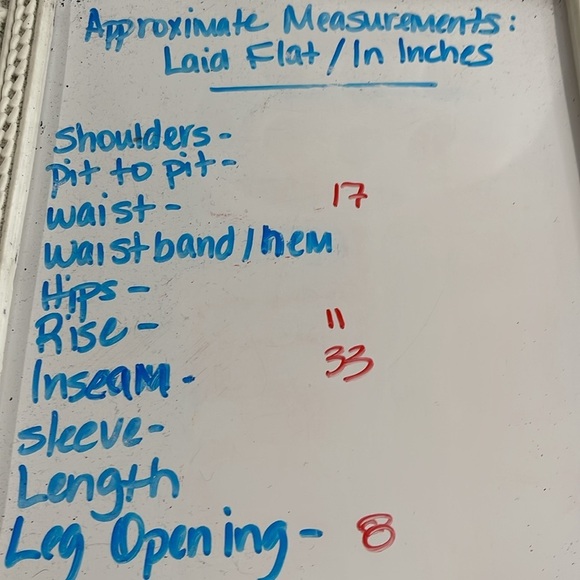 Approximate Measurements:
Laid Flat / In Inches
Shoulders -
pit to pit -
waist - 17
waistband / hem
Hips -
Rise - 11
Inseam - 33
sleeve -
Length
Leg Opening - 8